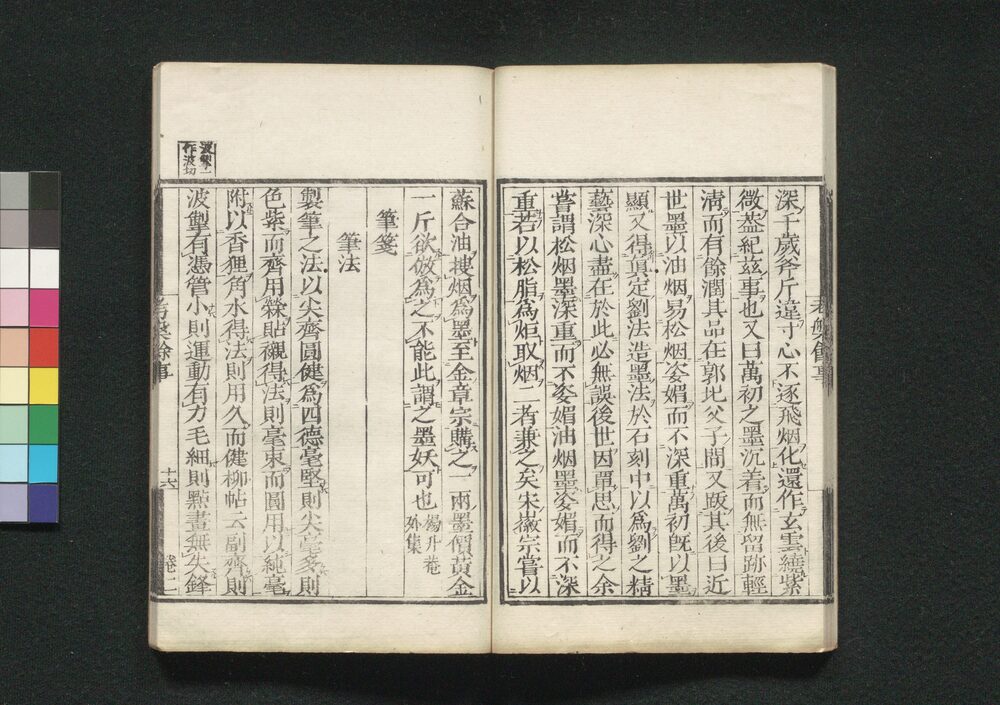 深千歲斧斤違寸心不逐飛烟化還作玄雲繞紫
微葢紀茲事也又曰萬初之墨沉着而無留跡輕
淸而有餘潤其品在郭圯父子間又跋其後曰近
世墨以油烟易松烟姿媚而不深重萬初旣以墨
顯又得眞定劉法造墨法於石刻中以爲劉之精
藝深心盡在於此必無誤後世因覃思而得之余
嘗謂松烟墨深重而不姿媚油烟墨姿媚而不深
重若以松脂爲炬取烟二者兼之矣宋徽宗嘗以
考槃餘事
蘇合油搜烟爲墨至金章宗購之一兩墨價黃金
一斤欲倣爲之不能此謂之墨妖可也 楊升菴外集
筆箋
筆法
製筆之法以尖齊圓健爲四德毫堅則尖毫多則
色紫而齊用檾貼襯得法則毫束而圓用以純毫
附以香狸角水得法則用久而健柳帖云副齊則
波掣有憑管小則運動有力毛細則點畫無失鋒
波掣一作波切
考槃餘事 十六 卷二